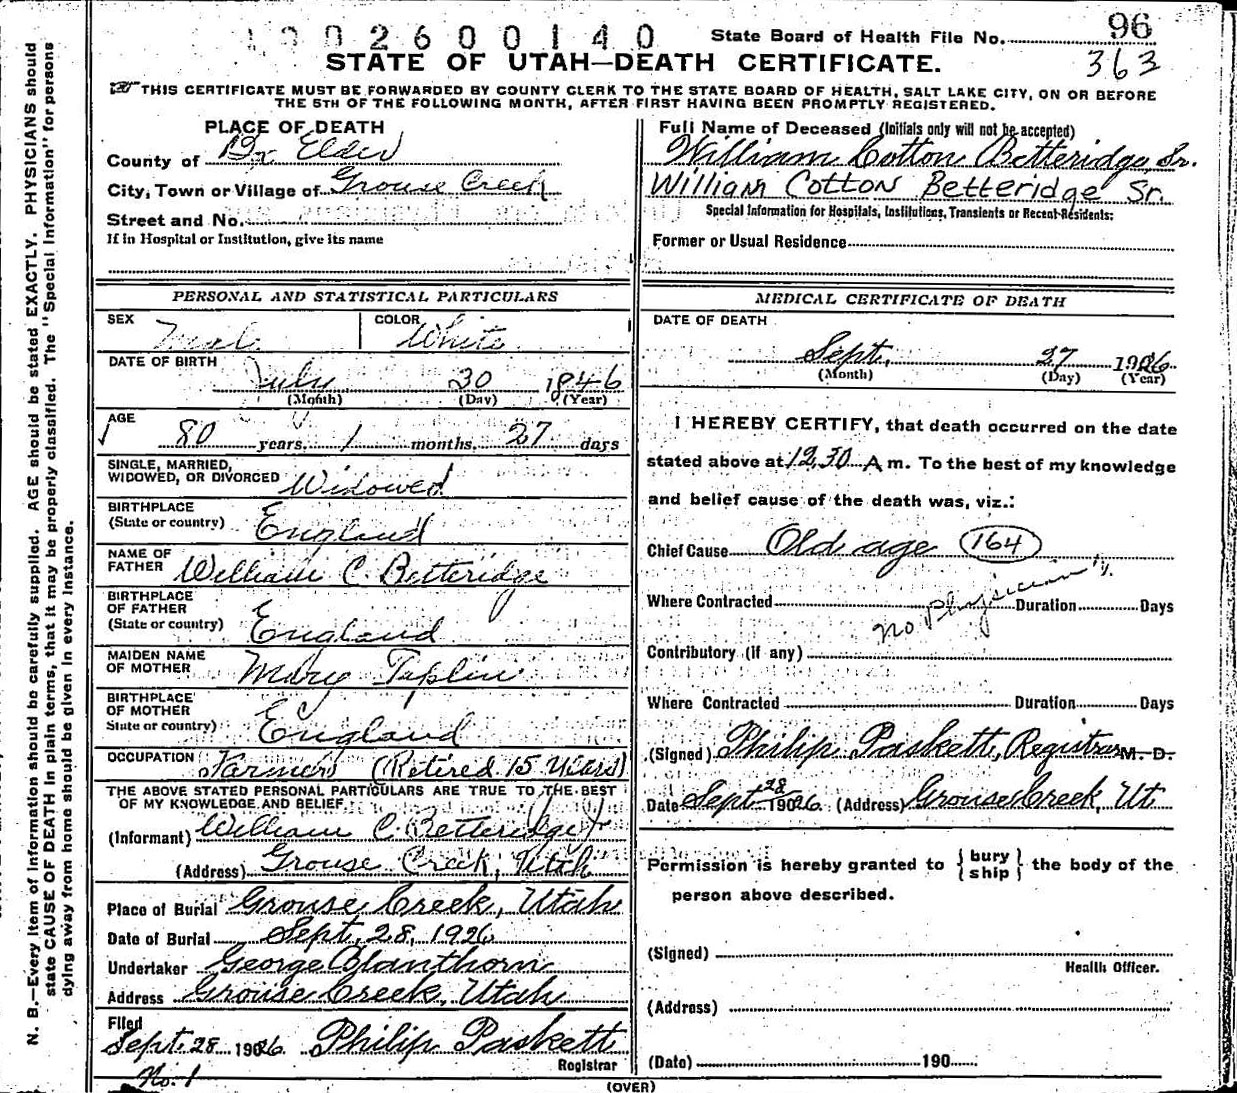 1902600140 State Board of Health File No. 96
STATE OF UTAH—DEATH CERTIFICATE. 363
THIS CERTIFICATE MUST BE FORWARDED BY COUNTY CLERK TO THE STATE BOARD OF HEALTH, SALT LAKE CITY, ON OR BEFORE
THE 5TH OF THE FOLLOWING MONTH, AFTER FIRST HAVING BEEN PROMPTLY REGISTERED.
PLACE OF DEATH
County of Bx Elder
City, Town or Village of Grouse Creek
Street and No.
If in Hospital or Institution, give its name
PERSONAL AND STATISTICAL PARTICULARS
SEX Male COLOR White
DATE OF BIRTH
July 30 1846
(Month) (Day) (Year)
AGE
80 years 1 months 27 days
SINGLE, MARRIED,
WIDOWED, OR DIVORCED Widowed
BIRTHPLACE
(State or country) England
NAME OF
FATHER William C. Betteridge
BIRTHPLACE
OF FATHER
(State or country) England
MAIDEN NAME
OF MOTHER Mary Taplin
BIRTHPLACE
OF MOTHER
State or country) England
OCCUPATION Farmer (Retired 15 Years)
THE ABOVE STATED PERSONAL PARTICULARS ARE TRUE TO THE BEST
OF MY KNOWLEDGE AND BELIEF.
(Informant) William C. Betteridge Jr
(Address) Grouse Creek, Utah
Place of Burial Grouse Creek, Utah
Date of Burial Sept. 28, 1926
Undertaker George Blanthorn
Address Grouse Creek, Utah
Filed
Sept. 28 1926 Philip Paskett
Registrar
No. 1
Full Name of Deceased (Initials only will not be accepted)
William Cotton Betteridge Sr.
William Cotton Betteridge Sr.
Special Information for Hospitals, Institutions, Transients or Recent Residents:
Former or Usual Residence
MEDICAL CERTIFICATE OF DEATH
DATE OF DEATH
Sept. 27 1926
(Month) (Day) (Year)
I HEREBY CERTIFY, that death occurred on the date
stated above at 12.30 A m. To the best of my knowledge
and belief cause of the death was, viz.:
Chief Cause Old age 164
Where Contracted Duration Days
no Physician
Contributory (if any)
Where Contracted Duration Days
(Signed) Philip Paskett, Registrar M. D.
Date Sept 28 1926 (Address) Grouse Creek, Ut
Permission is hereby granted to { bury ship } the body of the
person above described.
(Signed)
Health Officer.
(Address)
(Date) 190
(OVER)
N. B.—Every item of information should be carefully supplied. AGE should be stated EXACTLY. PHYSICIANS should
state CAUSE OF DEATH in plain terms, that it may be properly classified. The "Special Information" for persons
dying away from home should be given in every instance.